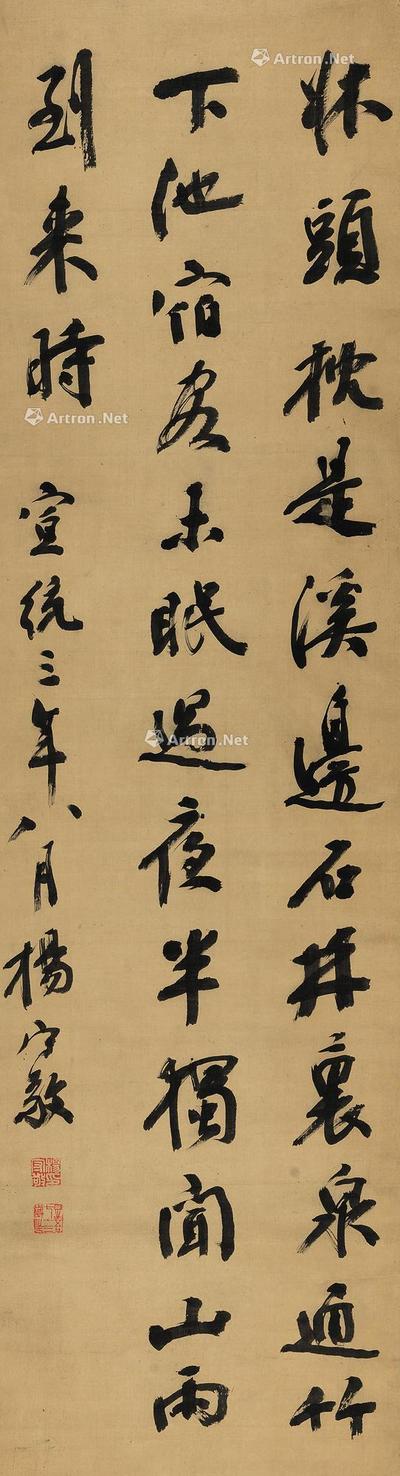 牀頭枕是溪邊石井裏泉通竹
下池宿客未眠過夜半獨聞山雨
到來時
宣統三年八月楊守敬
Artron.Net
Artron.Net
Artron.Net